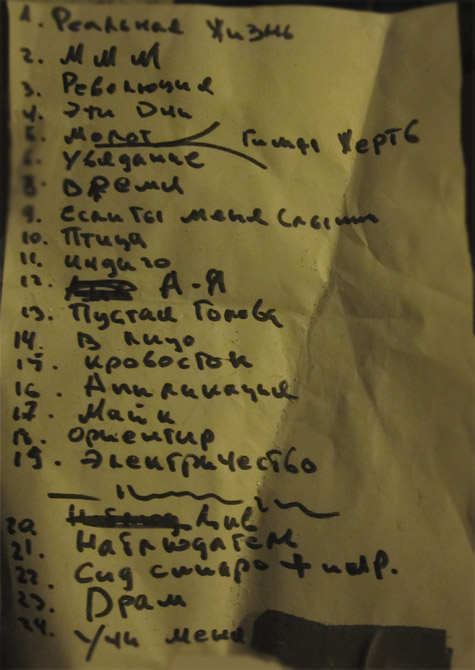 1. Реальная Жизнь
2. МММ
3. Революция
4. Эти Дни
5. Молот Гимны Жертв
6. Увядание
8. Время
9. Если ты меня слышишь
10. Птица
11. Индиго
12. А-Я
13. Пустая Голова
14. В лицо
15. Кровосток
16. Аппликация
17. Маяк
18. Ориентир
19. Электричество
20. Жив
21. Наблюдатель
22. Сид спиро +
23. Драм
24. Учи меня